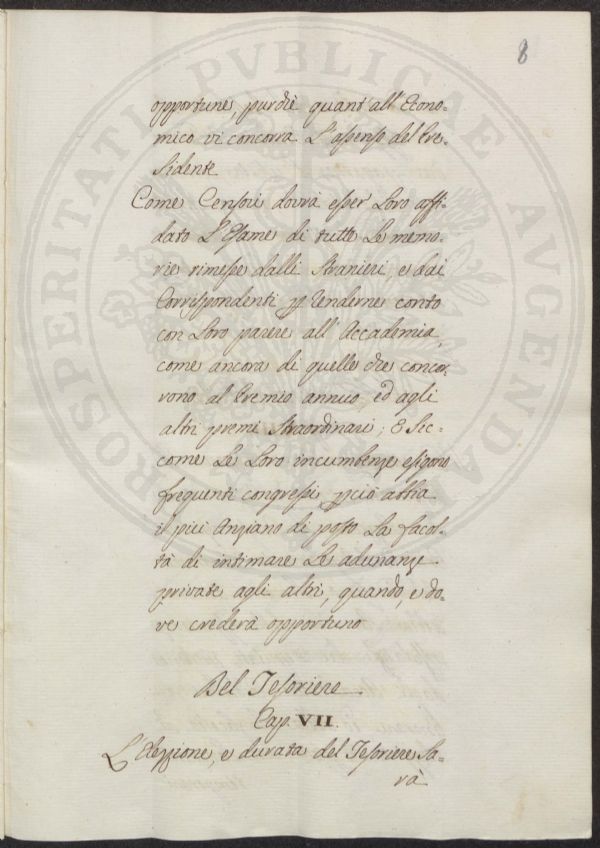 8
opportune, purchè quant' all' Econo-
mico vi concorra L'assenso del Pre-
sidente
Come Censori dovrà esser Loro affi-
dato L'Esame di tutte Le memo-
rie rimesse dalli Stranieri, e dai
Corrispondenti p renderne conto
con Loro parere all' Accademia,
come ancora di quelle che conco-
rono al Premio annuo, ed agli
altri premi Straordinari; E Sic-
come Le Loro incumbenze esigono
frequenti congressi pciò abbia
il più Anziano di posto La facol-
tà di intimare Le adunanze
private agli altri, quando, e do-
ve crederà opportuno
Del Tesoriere
Cap. VII.
L'Elezzione, e durata del Tesoriere Sa-
rà
PROSPERITATI PVBLICAE AVGENDAE